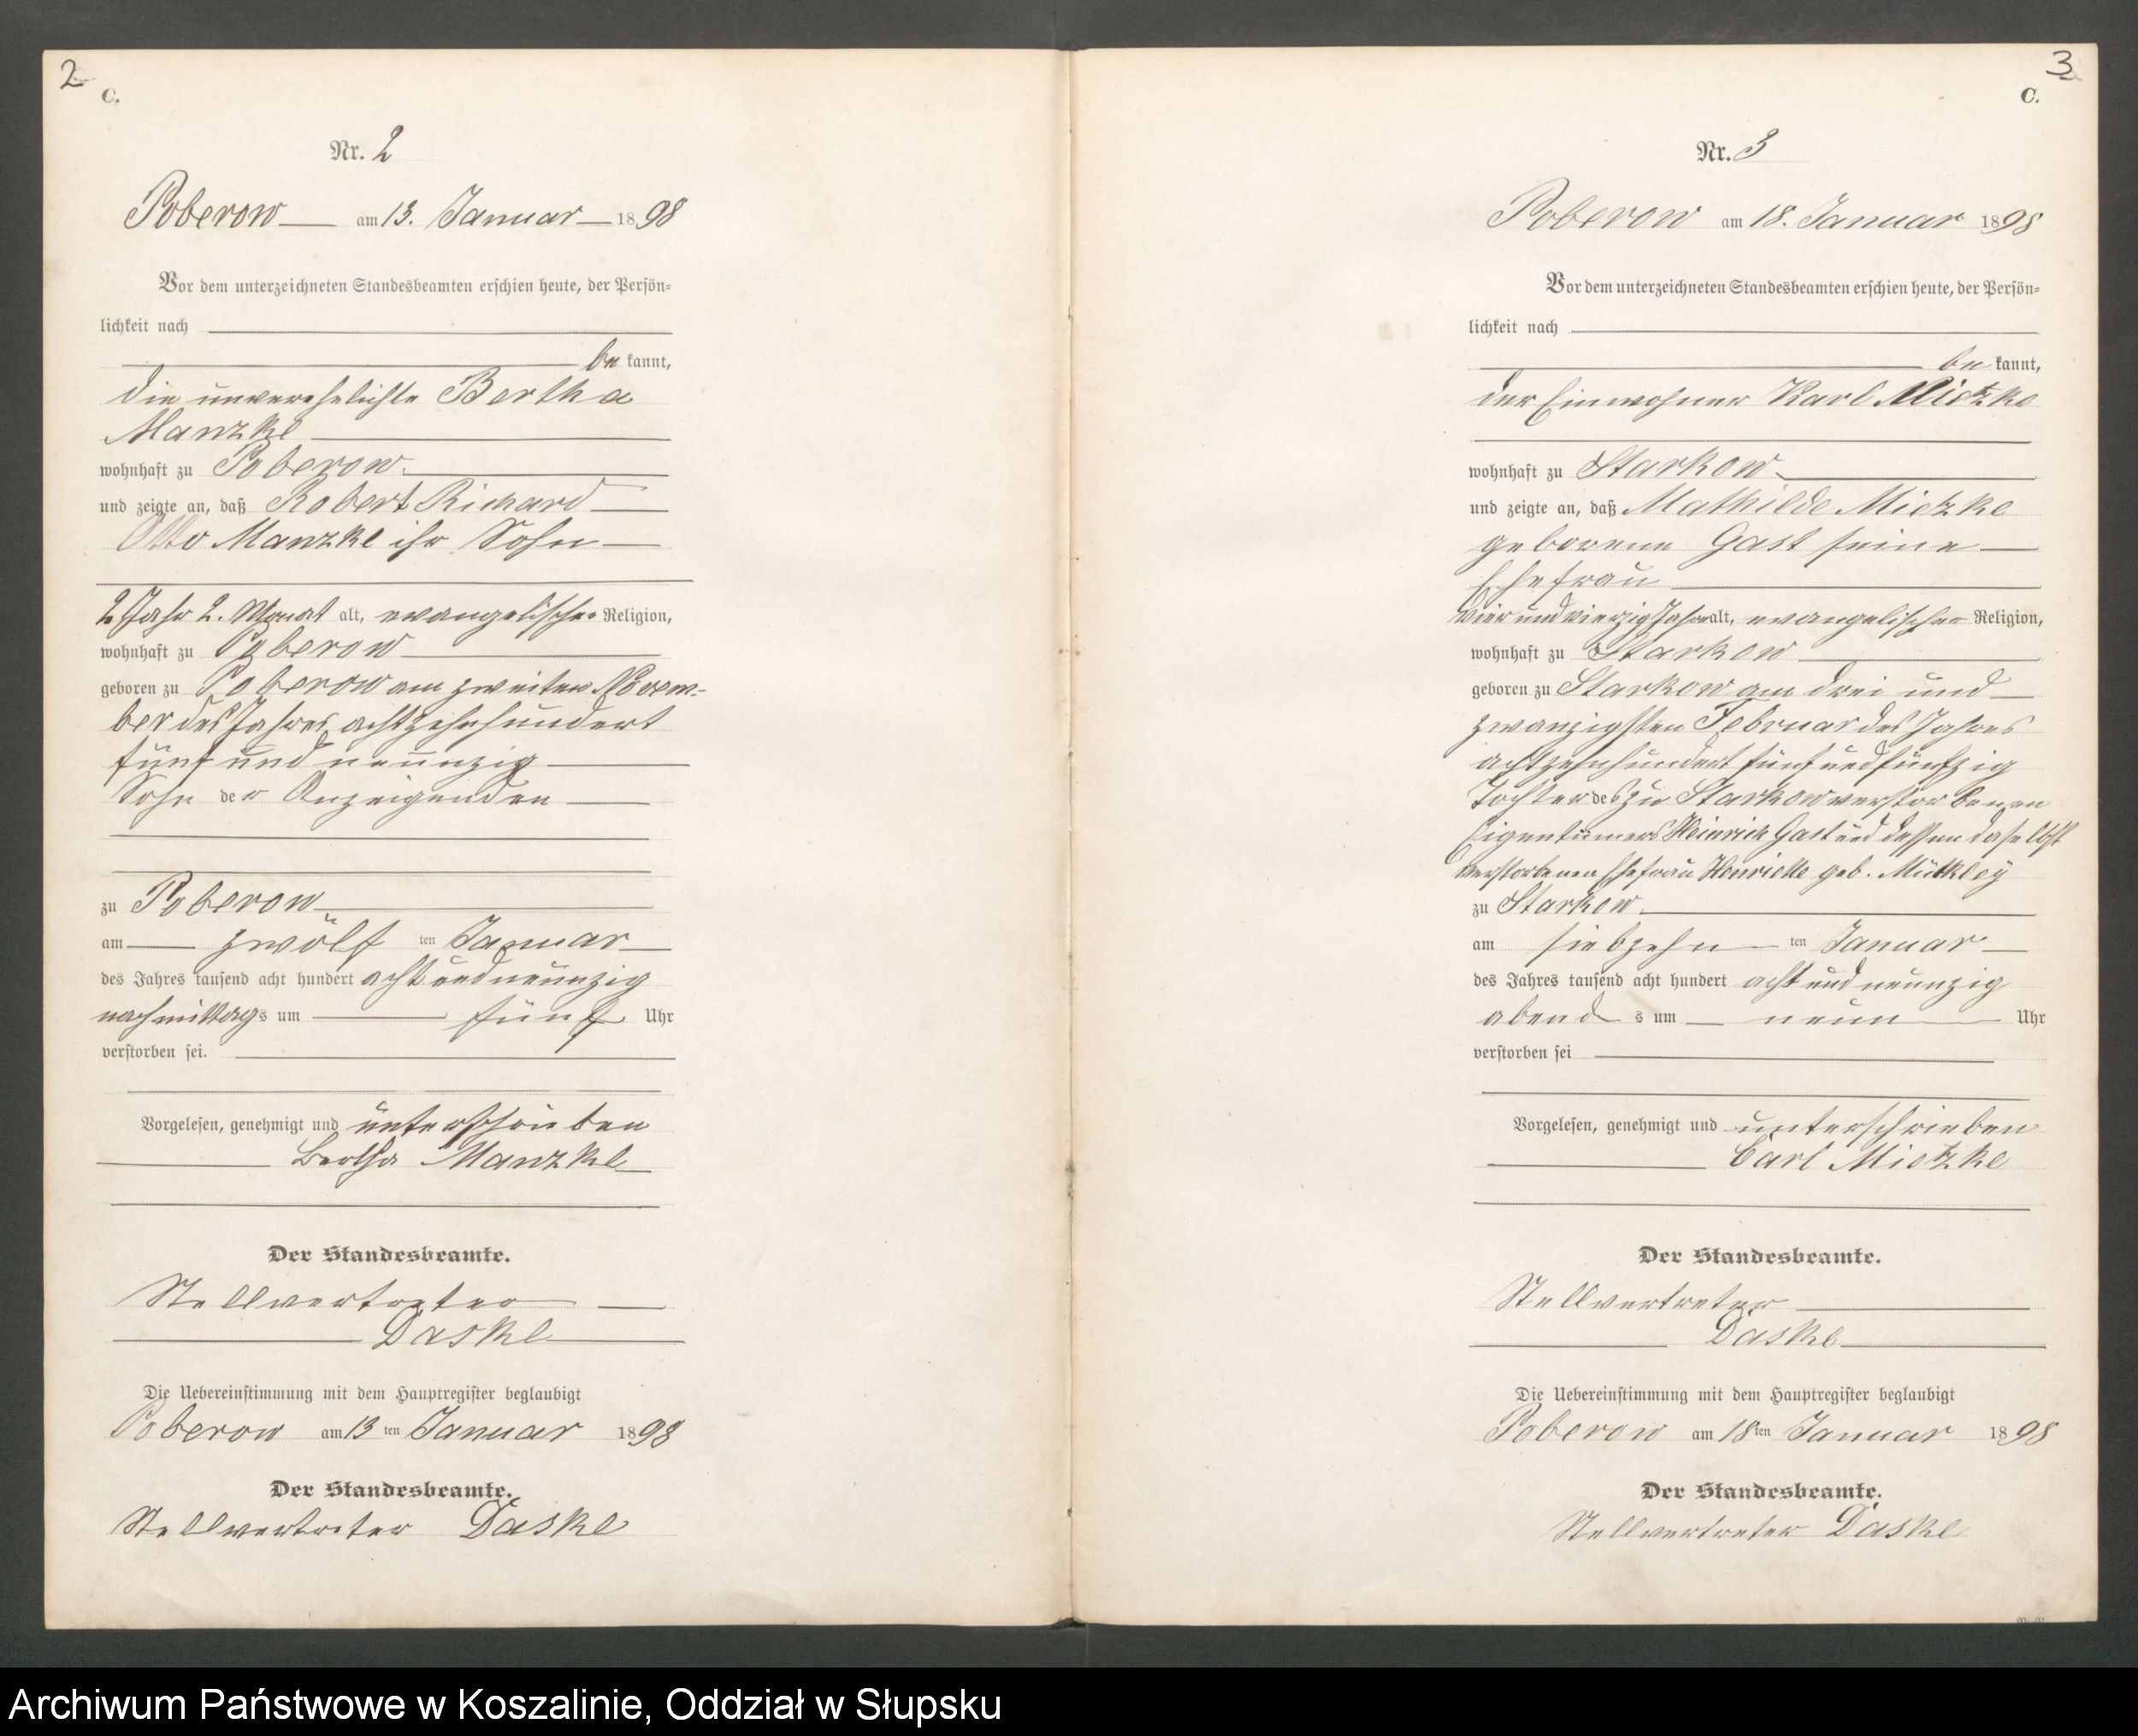 2
C.
Nr. 2
Poberow am 13. Januar 1898
Vor dem unterzeichneten Standesbeamten erschien heute, der Persön=
lichkeit nach
be kannt,
die unverehelichte Bertha
Manzke
wohnhaft zu Poberow
und zeigte an, daß Robert Richard
Otto Manzke ihr Sohn
2 Jahr 2. Monat alt, evangelischer Religion,
wohnhaft zu Poberow
geboren zu Poberow am zweiten Novem-
ber des Jahres achtzehnhundert
fünf und neunzig
Sohn der Anzeigenden
zu Poberow
am zwölf ten Januar
des Jahres tausend acht hundert acht und neunzig
nachmittags um fünf Uhr
verstorben sei.
Vorgelesen, genehmigt und unterschrieben
Bertha Manzke
Der Standesbeamte.
Stellvertreter
Daske
Die Uebereinstimmung mit dem Hauptregister beglaubigt
Poberow am 13 ten Januar 1898
Der Standesbeamte.
Stellvertreter Daske
3
C.
Nr. 3
Poberow am 18. Januar 1898
Vor dem unterzeichneten Standesbeamten erschien heute, der Persön=
lichkeit nach
be kannt,
der Einwohner Karl Mietzke
wohnhaft zu Starkow
und zeigte an, daß Mathilde Mietzke
geborene Gast seine
Ehefrau
vier und vierzig Jahre alt, evangelischer Religion,
wohnhaft zu Starkow
geboren zu Starkow am drei und
zwanzigsten Februar des Jahres
achtzehnhundert fünf und fünfzig
Tochter des zu Starkow verstorbenen
Eigentümers Heinrich Gast und dessen daselbst
verstorbenen Ehefrau Henriette geb. Mütkley
zu Starkow
am siebzehn ten Januar
des Jahres tausend acht hundert acht und neunzig
abend s um neun Uhr
verstorben sei
Vorgelesen, genehmigt und unterschrieben
Carl Mietzke
Der Standesbeamte.
Stellvertreter
Daske
Die Uebereinstimmung mit dem Hauptregister beglaubigt
Poberow am 18ten Januar 1898
Der Standesbeamte.
Stellvertreter Daske
Archiwum Państwowe w Koszalinie, Oddział w Słupsku